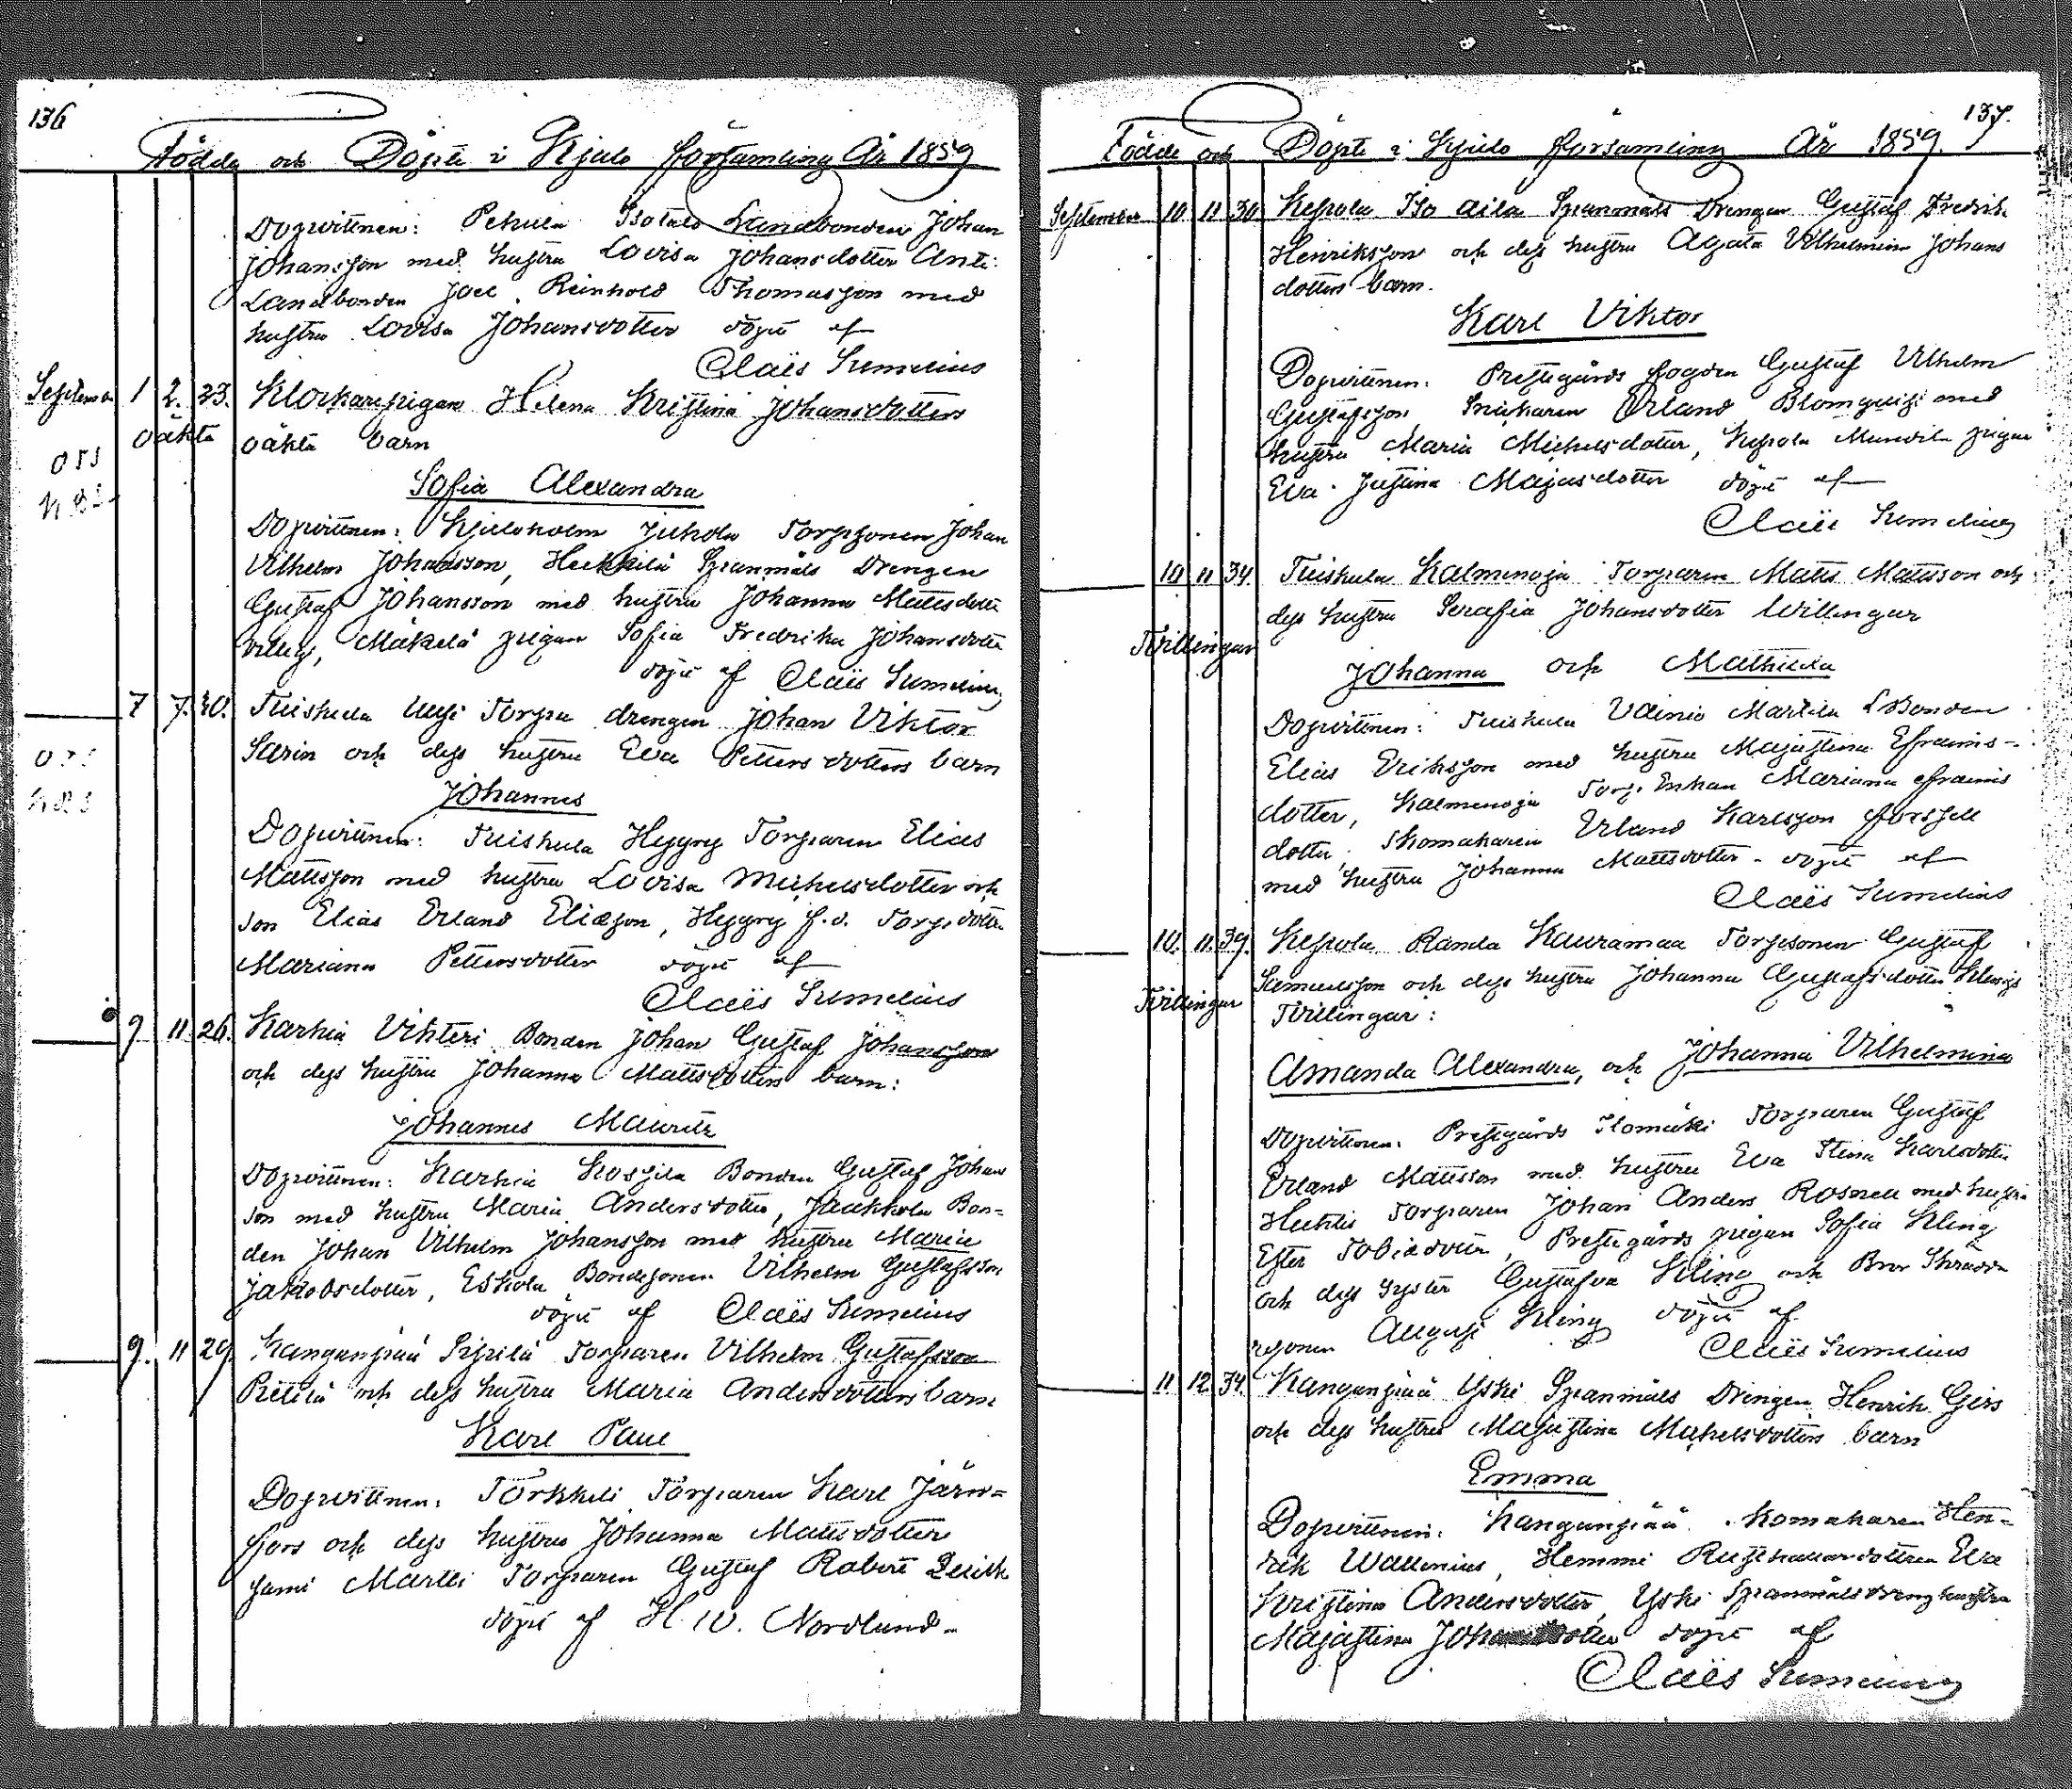 136
Födde och Döpte i Kjulo församling År 1859
Dopvittnen: Pehula Isotalo Landbonden Johan
Johansson med hustru Lovisa Johansdotter Anti
Landbonden Joel Reinhold Thomasson med
hustru Lovisa Johansdotter döpt af
Claës Sumelius
September 1 2. 23. Klockarepigan Helena Kristina Johansdotters
oäkta oäkta barn
Sofia Alexandra
Dopvittnen: Kjuloholm Juhola Torpsonen Johan
Vilhelm Johansson, Heikkilä Spanmåls Drengen
Gustaf Johansson med hustru Johanna Mattsdotter
Mäkelä pigan Sofia Fredrika Johansdotter
döpt af Claës Sumelius
7 7. 40. Tuiskula Torpa drengen Johan Viktor
Sarin och dess hustru Eva Petters dotters barn
Johannes
Dopvittnen: Tuiskula Hyyry Torparen Elias
Mattsson med hustru Lovisa Michelsdotter och
son Elias Erland Eliasson, Hyyry f.d. Torp.dotter
Mariana Pettersdotter döpt af
Claës Sumelius
9 11 26. Karhia Vihteri Bonden Johan Gustaf Johansson
och dess hustru Johanna Mattsdotters barn:
Johannes Mauritz
Dopvittnen: Karhia Bonden Gustaf Johans
son med hustru Maria Andersdotter, Jaakkola Bon=
den Johan Vilhelm Johansson med hustru Maria
Jakobsdotter, Eskola Bondesonen Vilhelm Gustafsson
döpt af Claës Sumelius
9. 11 29 Kanganpää Sipilä Torparen Vilhelm Gustafsson
Pietilä och dess hustru Maria Andersdotters barn
Karl Paul
Dopvittnen: Torkkeli Torparen Karl Järn=
fors och dess hustru Johanna Mattsdotter
Martti Torparen Gustaf Robert
döpt af H. W. Nordlund
137.
Födde och Döpte i Kjulo församling År 1859.
September 10 11 30 Kepola Iso Äilä Spanmåls Drengen Gustaf Fredrik
Henriksson och dess hustru Agata Vilhelmina Johans
dotters barn.
Karl Viktor
Dopvittnen: Prestgårds fogden Gustaf Vilhelm
Gustafsson, Snickaren Erland Blomqvist med
hustru Maria Michelsdotter, Kepola Munsila pigan
Eva Justina Majasdotter döpt af
Claës Sumelius
10 11 34. Tuiskula Kalmenoja Torparen Matts Mattsson och
dess hustru Serafia Johansdotter tvillingar
Tvillingar
Johanna och Mathilda
Dopvittnen: Tuiskula Vainio Martila LBonden
Elias Eriksson med hustru Majastina Efraims-
dotter, Kalmenoja Torp. Enkan Mariana Efraims
dotter, Skomakaren Erland Karlsson Forssell
med hustru Johanna Mattsdotter - döpt af
Claës Sumelius
10. 11. 39. Kepola Randa Kauramaa Torpsonen Gustaf
Samuelsson och dess hustru Johanna Gustafsdotter Klings
Tvillingar Tvillingar:
Amanda Alexandra, och Johanna Vilhelmina
Dopvittnen: Prestgårds Ilomäki Torparen Gustaf
Erland Mattsson med hustru Eva Stina Karlsdotter
Huhtis Torparen Johan Anders Rosnell med hustru
Ester Tobiasdotter, Prestgårds pigan Sofia Kling
och dess syster Gustafva Kling och Bror Skräddar
August Kling döpt af
Claës Sumelius
11 12. 34. Kanganpää Yski Spanmåls Drengen Henrik Gers
och dess hustru Majastina Michelsdotters barn
Emma
Dopvittnen: Kanganpää Skomakaren Hen=
rik Wallenius, Hemmi Rusthållardottern Eva
Kristina Andersdotter, Yski Spanmålsdrenghustru
Majastina Johansdotter döpt af
Claës Sumelius